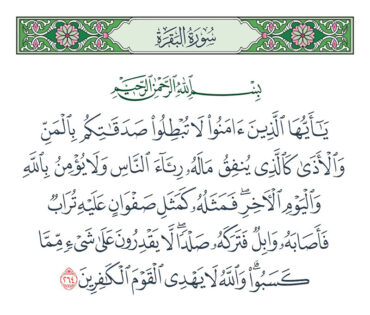 سُورَةُ البَقَرَةِ
بِسْمِ ٱللَّهِ ٱلرَّحْمَٰنِ ٱلرَّحِيمِ
يَـٰٓأَيُّهَا ٱلَّذِينَ ءَامَنُوا۟ لَا تُبْطِلُوا۟ صَدَقَـٰتِكُم بِٱلْمَنِّ
وَٱلْأَذَىٰ كَٱلَّذِى يُنفِقُ مَالَهُۥ رِئَآءَ ٱلنَّاسِ وَلَا يُؤْمِنُ بِٱللَّهِ
وَٱلْيَوْمِ ٱلْـَٔاخِرِ ۖ فَمَثَلُهُۥ كَمَثَلِ صَفْوَانٍ عَلَيْهِ تُرَابٌ
فَأَصَابَهُۥ وَابِلٌ فَتَرَكَهُۥ صَلْدًا ۖ لَّا يَقْدِرُونَ عَلَىٰ شَىْءٍ مِّمَّا
كَسَبُوا۟ ۗ وَٱللَّهُ لَا يَهْدِى ٱلْقَوْمَ ٱلْكَـٰفِرِينَ ٢٦٤